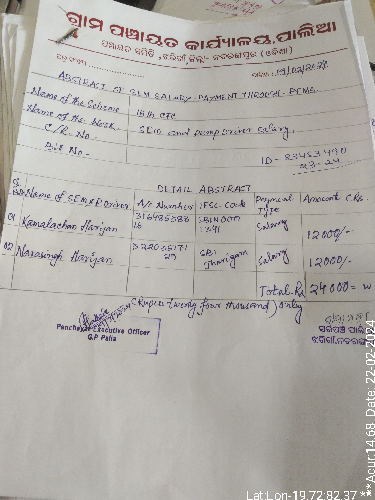 ଗ୍ରାମ ପଞ୍ଚାୟତ କାର୍ଯ୍ୟାଳୟ, ପାଲିଆ
ପଞ୍ଚାୟତ ସମିତି, ଝରିଗାଁ, ଜିଲ୍ଲା- ନବରଙ୍ଗପୁର (ଓଡ଼ିଶା)
ABSTRACT OF SEM SALARY PAYMENT THROUGH- PFMS
Name of the Scheme 15th CFC
Name of the Work SEM and pump Driver salary.
C/R. No
Bill No- ID- 23453490
23-24
DETAIL ABSTRACT
Name of SEM & P. Driver A/c Number IFSC-Code Payment Type Amount (Rs.
01 Kamalachan Hariyan Salary 12000/-
02 Narasingh Hariyan SBI Jharigam Salary 12000/-
Total Rs 24000=00
(Rupees twenty four thousand) only
Panchayat Executive Officer
G.P Palia
ସରପଞ୍ଚ
ଝରିଗାଁ
Lat:Lon-19.72:82.37 **Acur:14.68 Date: 22-02-2024